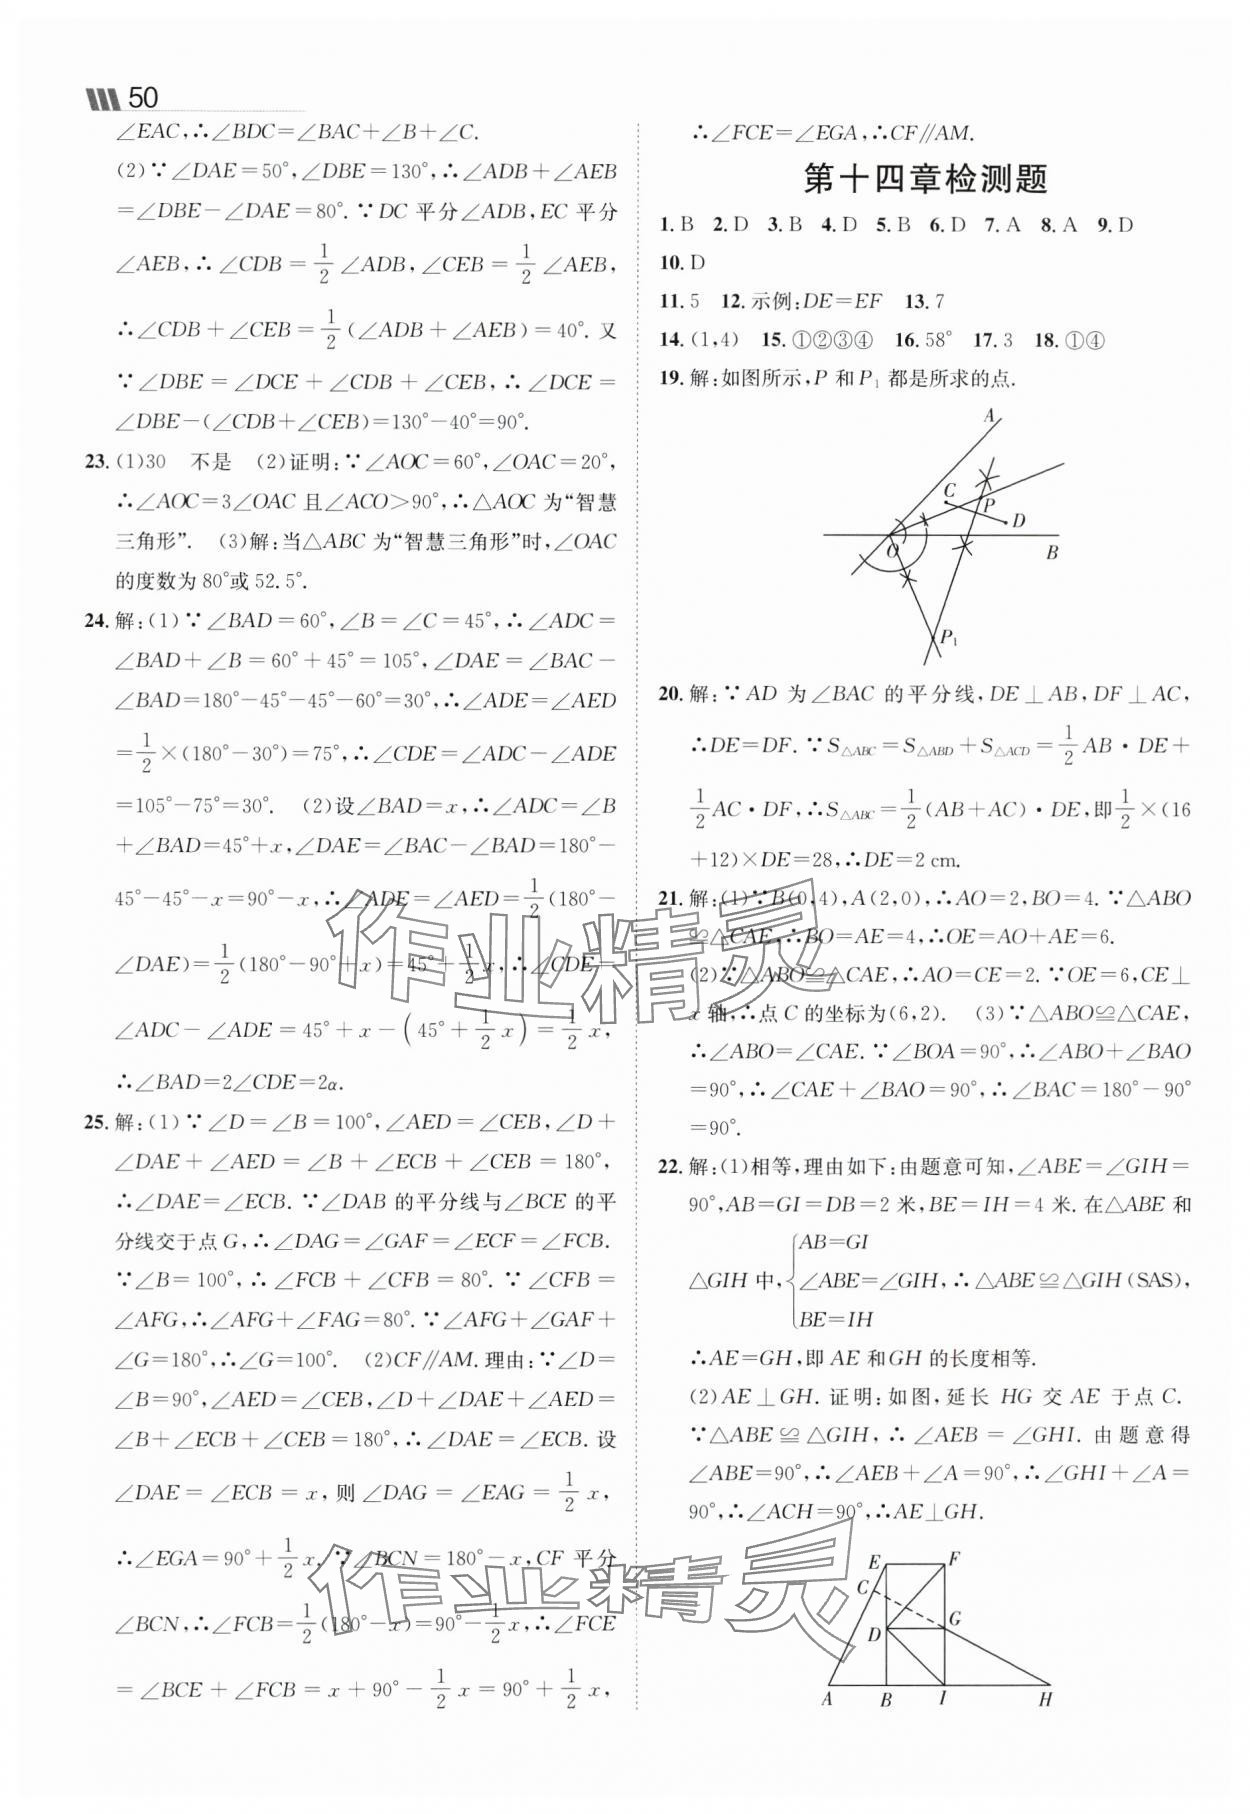 50
∠EAC,∴∠BDC=∠BAC+∠B+∠C.
(2)∵∠DAE=50°,∠DBE=130°,∴∠ADB+∠AEB
=∠DBE-∠DAE=80°.∵DC 平分∠ADB,EC 平分
∠AEB,∴∠CDB=1/2∠ADB,∠CEB=1/2∠AEB,
∴∠CDB+∠CEB=1/2(∠ADB+∠AEB)=40°.又
∵∠DBE=∠DCE+∠CDB+∠CEB,∴∠DCE=
∠DBE-(∠CDB+∠CEB)=130°-40°=90°.
23.(1)30 不是 (2)证明:∵∠AOC=60°,∠OAC=20°,
∴∠AOC=3∠OAC 且∠ACO>90°,∴△AOC 为“智慧
三角形”. (3)解:当△ABC 为“智慧三角形”时,∠OAC
的度数为 80°或 52.5°.
24.解:(1)∵∠BAD=60°,∠B=∠C=45°,∴∠ADC=
∠BAD+∠B=60°+45°=105°,∠DAE=∠BAC-
∠BAD=180°-45°-45°-60°=30°,∴∠ADE=∠AED
=1/2×(180°-30°)=75°,∴∠CDE=∠ADC-∠ADE
=105°-75°=30°. (2)设∠BAD=x,∴∠ADC=∠B
+∠BAD=45°+x,∠DAE=∠BAC-∠BAD=180°-
45°-45°-x=90°-x,∴∠ADE=∠AED=1/2(180°-
∠DAE)=1/2(180°-90°+x)=45°+1/2x,∴∠CDE=
∠ADC-∠ADE=45°+x-(45°+1/2x)=1/2x,
∴∠BAD=2∠CDE=2α.
25.解:(1)∵∠D=∠B=100°,∠AED=∠CEB,∠D+
∠DAE+∠AED=∠B+∠ECB+∠CEB=180°,
∴∠DAE=∠ECB.∵∠DAB 的平分线与∠BCE 的平
分线交于点 G,∴∠DAG=∠GAF=∠ECF=∠FCB.
∵∠B=100°,∴∠FCB+∠CFB=80°.∵∠CFB=
∠AFG,∴∠AFG+∠FAG=80°.∵∠AFG+∠GAF+
∠G=180°,∴∠G=100°. (2)CF∥AM.理由:∵∠D=
∠B=90°,∠AED=∠CEB,∠D+∠DAE+∠AED=
∠B+∠ECB+∠CEB=180°,∴∠DAE=∠ECB.设
∠DAE=∠ECB=x,则∠DAG=∠EAG=1/2x,
∴∠EGA=90°+1/2x,∵∠BCN=180°-x,CF 平分
∠BCN,∴∠FCB=1/2(180°-x)=90°-1/2x,∴∠FCE
=∠BCE+∠FCB=x+90°-1/2x=90°+1/2x,
∴∠FCE=∠EGA,∴CF∥AM.
第十四章检测题
1.B 2.D 3.B 4.D 5.B 6.D 7.A 8.A 9.D
10.D
11.5 12.示例:DE=EF 13.7
14.(1,4) 15.①②③④ 16.58° 17.3 18.①④
19.解:如图所示,P 和 P₁ 都是所求的点.
A
C
P
D
O
B
P₁
20.解:∵AD 为∠BAC 的平分线,DE⊥AB,DF⊥AC,
∴DE=DF.∵S△ABC=S△ABD+S△ACD=1/2AB·DE+
1/2AC·DF,∴S△ABC=1/2(AB+AC)·DE,即1/2×(16
+12)×DE=28,∴DE=2 cm.
21.解:(1)∵B(0,4),A(2,0),∴AO=2,BO=4.∵△ABO
≌△CAE,∴BO=AE=4,∴OE=AO+AE=6.
(2)∵△ABO≌△CAE,∴AO=CE=2.∵OE=6,CE⊥
x 轴,∴点 C 的坐标为(6,2). (3)∵△ABO≌△CAE,
∴∠ABO=∠CAE.∵∠BOA=90°,∴∠ABO+∠BAO
=90°,∴∠CAE+∠BAO=90°,∴∠BAC=180°-90°
=90°.
22.解:(1)相等,理由如下:由题意可知,∠ABE=∠GIH=
90°,AB=GI=DB=2 米,BE=IH=4 米.在△ABE 和
AB=GI
△GIH 中,{∠ABE=∠GIH,∴△ABE≌△GIH(SAS),
BE=IH
∴AE=GH,即 AE 和 GH 的长度相等.
(2)AE⊥GH.证明:如图,延长 HG 交 AE 于点 C.
∵△ABE≌△GIH,∴∠AEB=∠GHI.由题意得
∠ABE=90°,∴∠AEB+∠A=90°,∴∠GHI+∠A=
90°,∴∠ACH=90°,∴AE⊥GH.
E F
C
D G
A B I H
作业精灵
作业精灵